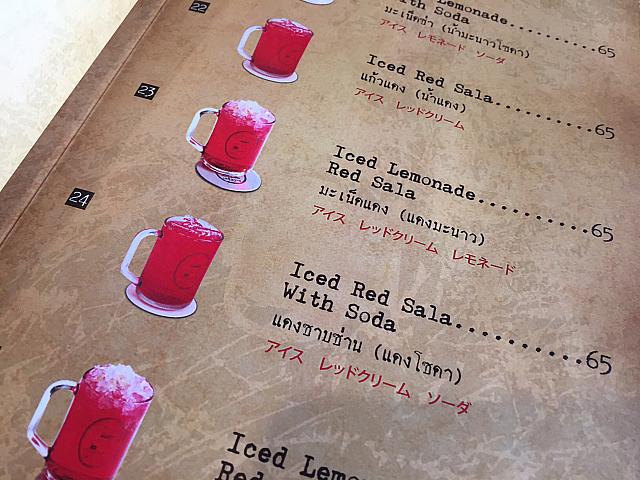 Lemonade
With Soda..........65
มะเน็ดซ่า (น้ำมะนาวโซดา)
アイス レモネード ソーダ
22
Iced Red Sala..........65
แก้วแดง (น้ำแดง)
アイス レッドクリーム
23
Iced Lemonade
Red Sala..........65
มะเน็ดแดง (แดงมะนาว)
アイス レッドクリーム レモネード
24
Iced Red Sala
With Soda..........65
แดงซาบซ่าน (แดงโซดา)
アイス レッドクリーム ソーダ
Iced
Red